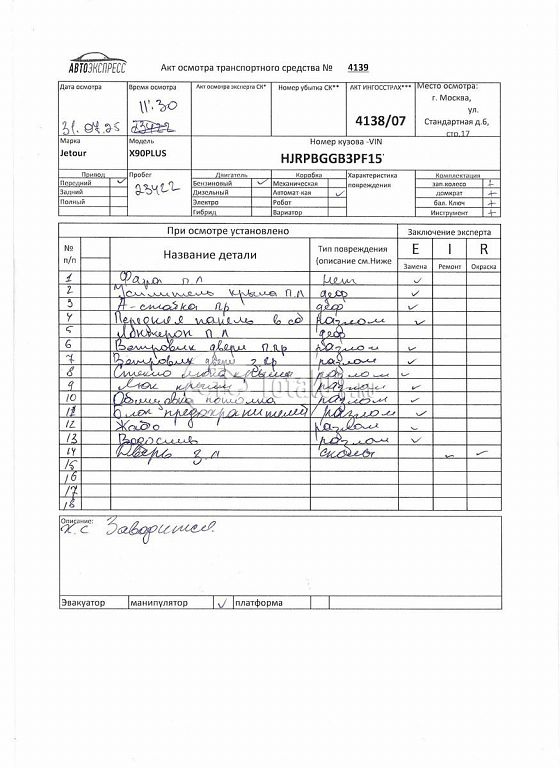 АВТОЭКСПРЕСС
Акт осмотра транспортного средства № 4139
Дата осмотра Время осмотра Акт осмотра эксперта СК* Номер убытка СК** АКТ ИНГОССТРАХ*** Место осмотра:
31.07.25 11:30 4138/07 г. Москва,
ул.
Стандартная д.6,
стр.17
Марка Модель Номер кузова -VIN
Jetour X90PLUS HJRPBGGB3PF15
Привод Пробег Двигатель Коробка Характеристика повреждения Комплектация
Передний ✓ 23422 Бензиновый ✓ Механическая зап.колесо +
Задний Дизельный Автомат-кая ✓ домкрат +
Полный Электро Робот бал. Ключ +
Гибрид Вариатор Инструмент +
При осмотре установлено Заключение эксперта
№ п/п Название детали Тип повреждения (описание см.Ниже E I R
Замена Ремонт Окраска
1 Фара п л нет ✓
2 Усилитель крыла п л деф ✓
3 А-стойка пр деф ✓
4 Передняя панель в сб разлом ✓
5 Лонжерон п л деф
6 Ветровик двери п пр разлом ✓
7 Ветровик двери з пр разлом ✓
8 Стекло люка крыши разлом ✓
9 Люк крыши разлом ✓
10 Обшивка потолка разлом ✓
11 Блок предохранителей разлом ✓
12 Жабо разлом ✓
13 Водослив разлом ✓
14 Дверь з л сколы ✓ ✓
15
16
17
18
Описание:
х.с Заводится.
Эвакуатор манипулятор ✓ платформа